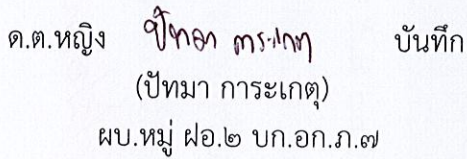 ด.ต.หญิง ปัทมา การะเกตุ บันทึก
(ปัทมา การะเกตุ)
ผบ.หมู่ ฝอ.๒ บก.อก.ภ.๗